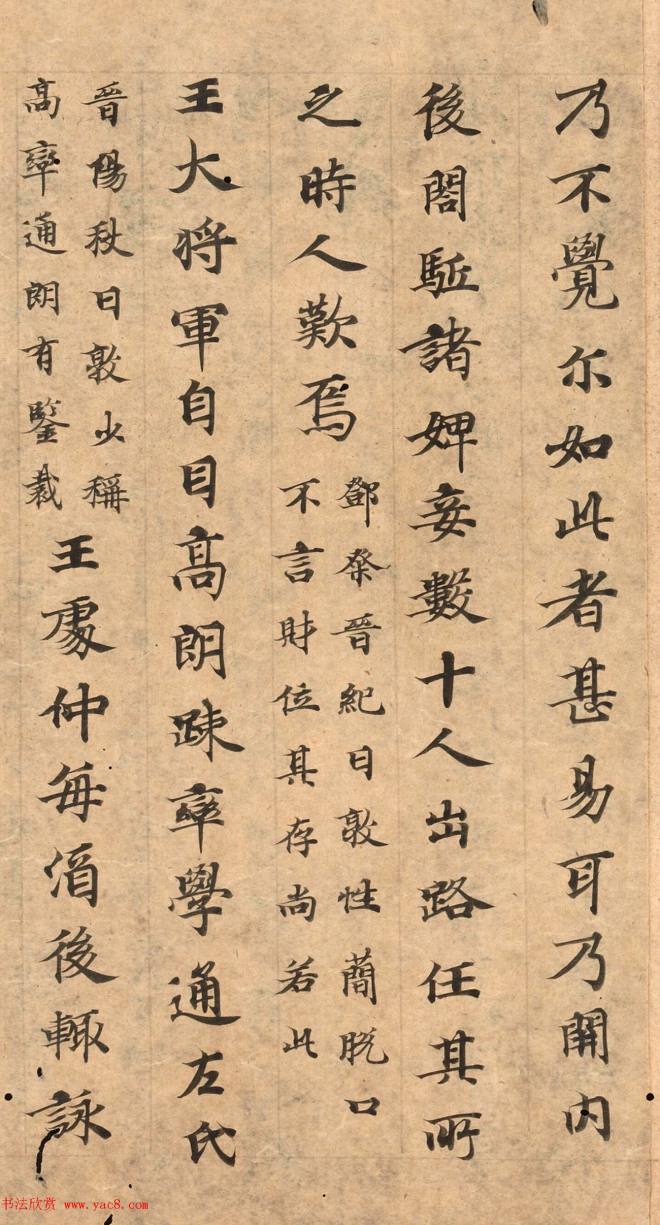 乃不覺尔如此者甚易耳乃開内
後閤駈諸婢妾數十人出路任其所
之時人歎焉
鄧粲晉紀曰敦性蕳脱口
不言財位其存尚若此
王大将軍自目高朗踈率學通左氏
晉陽秋曰敦少稱
高率通朗有鑒裁
王處仲每酒後輙詠
书法欣赏 www.yac8.com